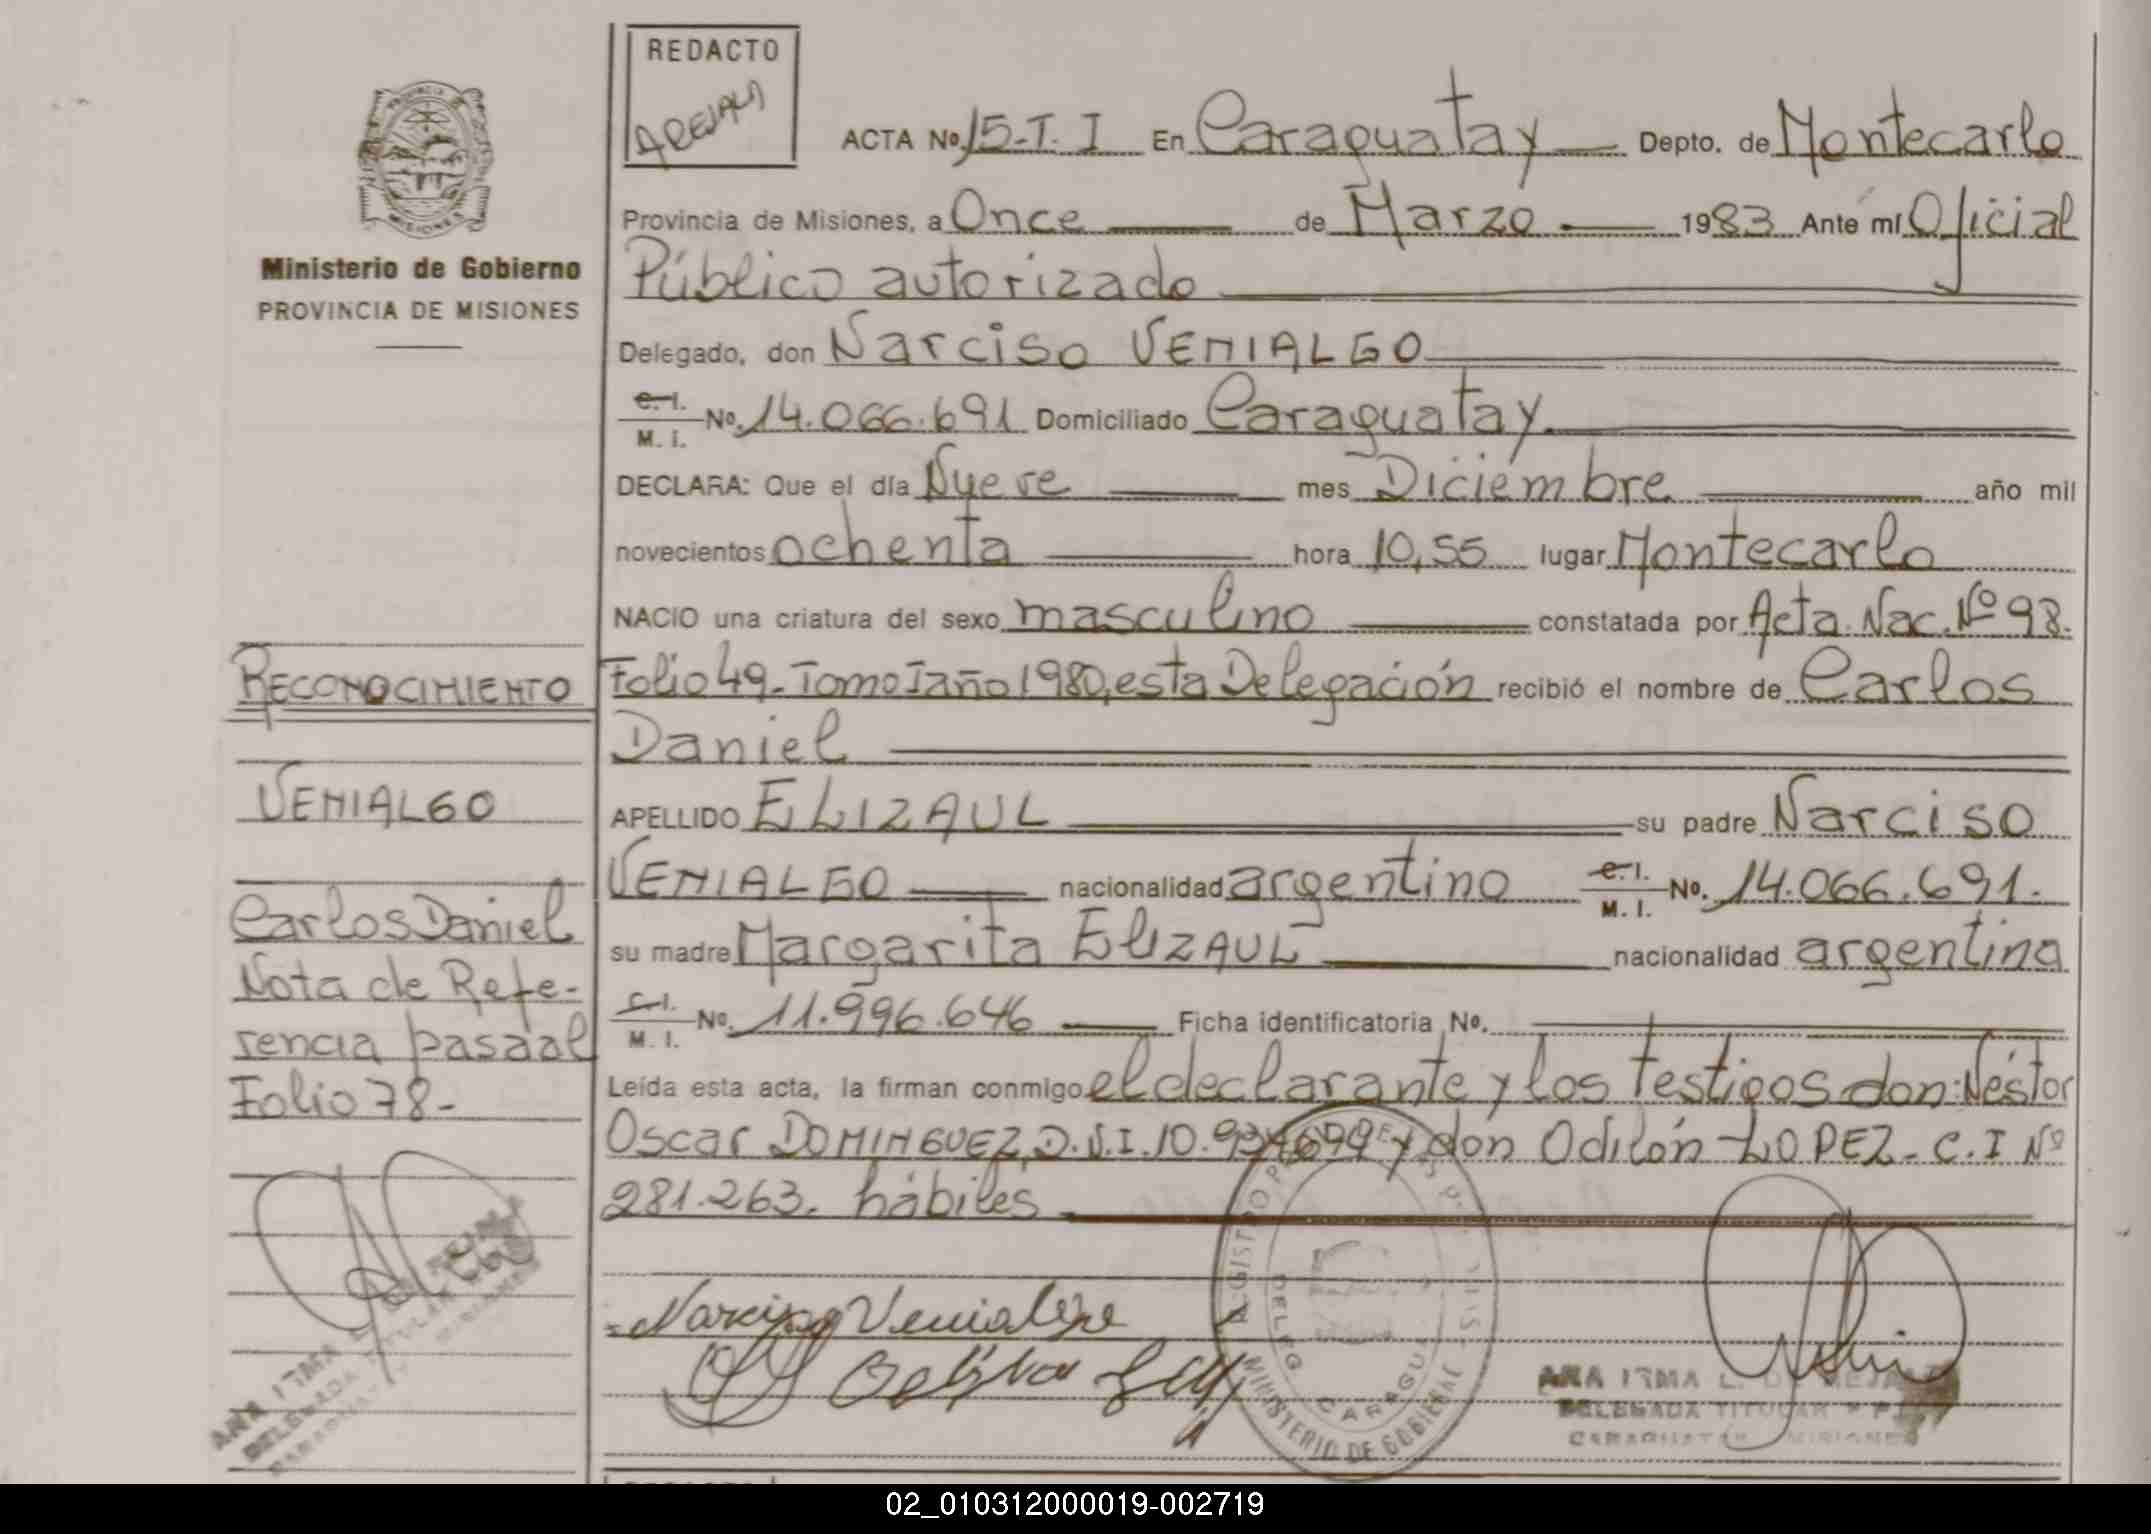 REDACTO
AREJALD
ACTA Nº 15-T. I En Caraguatay Depto. de Montecarlo
Provincia de Misiones, a Once de Marzo 1983 Ante mí Oficial
Público autorizado
Delegado, don Narciso VENIALGO
C.I. M.I. Nº. 14.066.691 Domiciliado Caraguatay
DECLARA: Que el día Nueve mes Diciembre año mil
novecientos ochenta hora 10,55 lugar Montecarlo
NACIO una criatura del sexo masculino constatada por Acta. Nac. Nº 98.
Folio 49- Tomo I año 1980, esta Delegación recibió el nombre de Carlos
Daniel
APELLIDO ELIZAUL su padre Narciso
VENIALGO nacionalidad argentino C.I. M.I. Nº. 14.066.691.
su madre Margarita ELIZAUL nacionalidad argentina
C.I. M.I. Nº. 11.996.646 Ficha identificatoria Nº.
Leída esta acta, la firman conmigo el declarante y los testigos don: Néstor
Oscar DOMINGUEZ, D.N.I. 10. y don Odilón LOPEZ- C.I Nº
281.263. hábiles
Narciso Venialgo
ANA IRMA L. DE
DELEGADA TITULAR
CARAGUATAY MISIONES
MINISTERIO DE GOBIERNO
DELEG. CARAGUA
Ministerio de Gobierno
PROVINCIA DE MISIONES
RECONOCIMIENTO
VENIALGO
Carlos Daniel
Nota de Refe-
rencia pasa al
Folio 78-
ANA IRMA
DELEGADA TITULAR
CARAGUATAY MISIONES
02_010312000019-002719